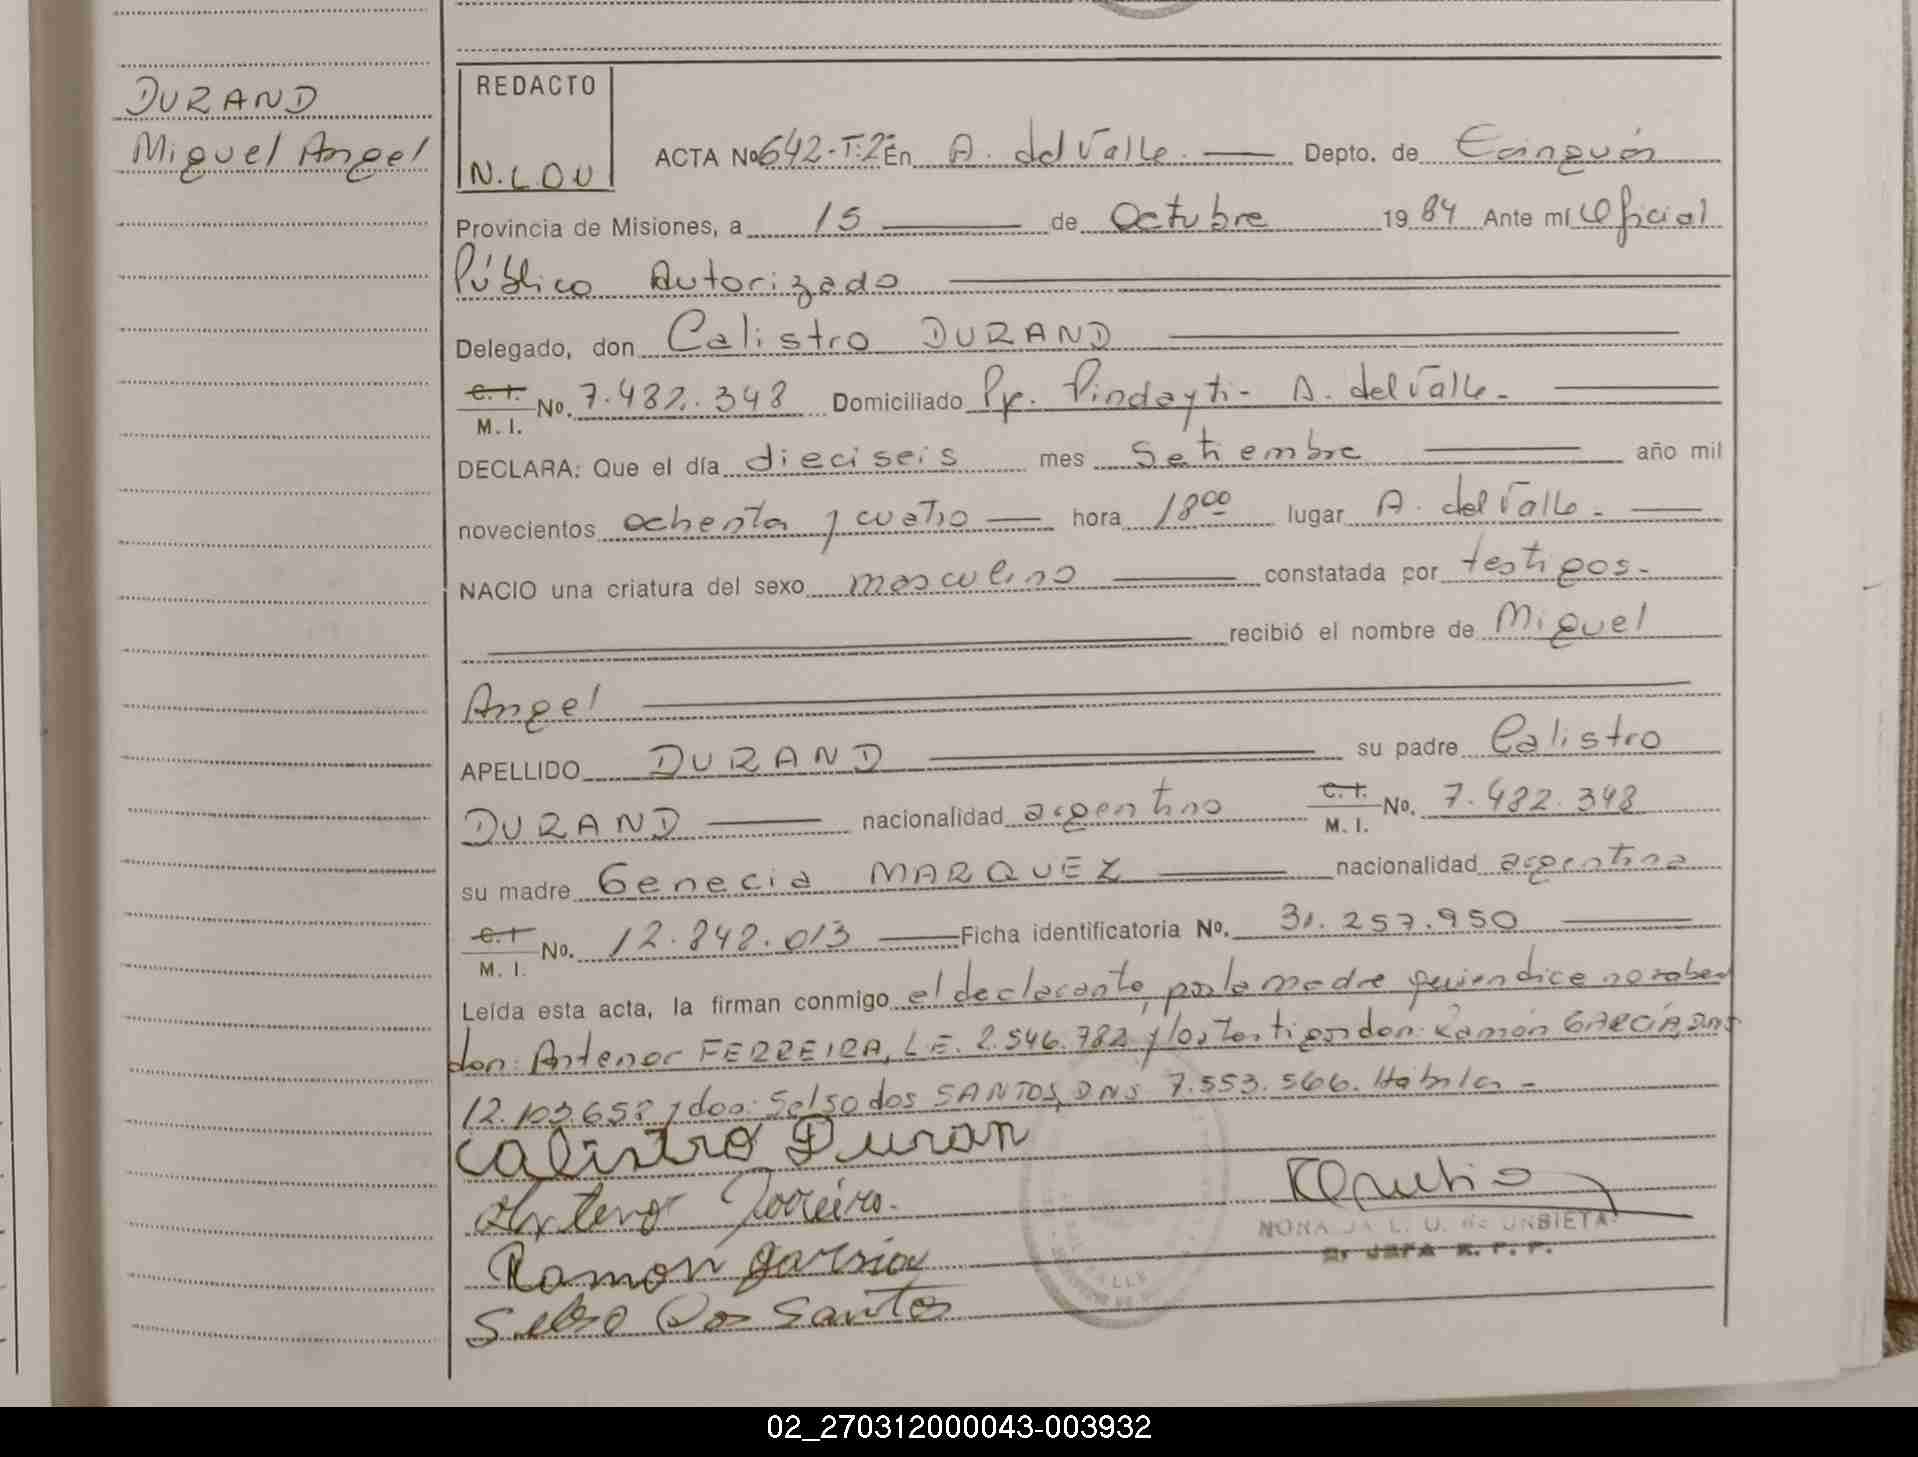 DURAND
Miguel Angel
REDACTO
N.L.D.U
ACTA No 642-T:2 En A. del Valle. Depto. de Cainguás
Provincia de Misiones, a 15 de Octubre 1984 Ante mí Oficial
Público Autorizado
Delegado, don Calistro DURAND
C.I. M.I. No. 7.482.348 Domiciliado Pje. Pindayti - A. del Valle.
DECLARA: Que el día dieciseis mes Setiembre año mil
novecientos ochenta y cuatro hora 18 00 lugar A. del Valle.
NACIO una criatura del sexo masculino constatada por testigos.
recibió el nombre de Miguel
Angel
APELLIDO DURAND su padre Calistro
DURAND nacionalidad argentino C.I. M.I. No. 7.482.348
su madre Genecia MARQUEZ nacionalidad argentina
C.I M.I. No. 12.842.013 Ficha identificatoria No. 31.257.950
Leída esta acta, la firman conmigo el declarante, por la madre quien dice no saber
don: Antenor FERREIRA, L.E. 2.546.782 y los testigos don: Ramón GARCÍA, DNI
12.103.658 y don: Selso dos SANTOS, DNI 7.553.566. Hábiles -
Calistro Duran
Antenor Ferreira.
Ramon Garsia
Selso Dos Santos
NORA L. D. U. de URBIETA
R. P. P.
VALLE
02_270312000043-003932